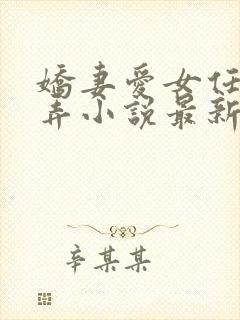 嬌妻愛女任
弄小說最新
辛某某